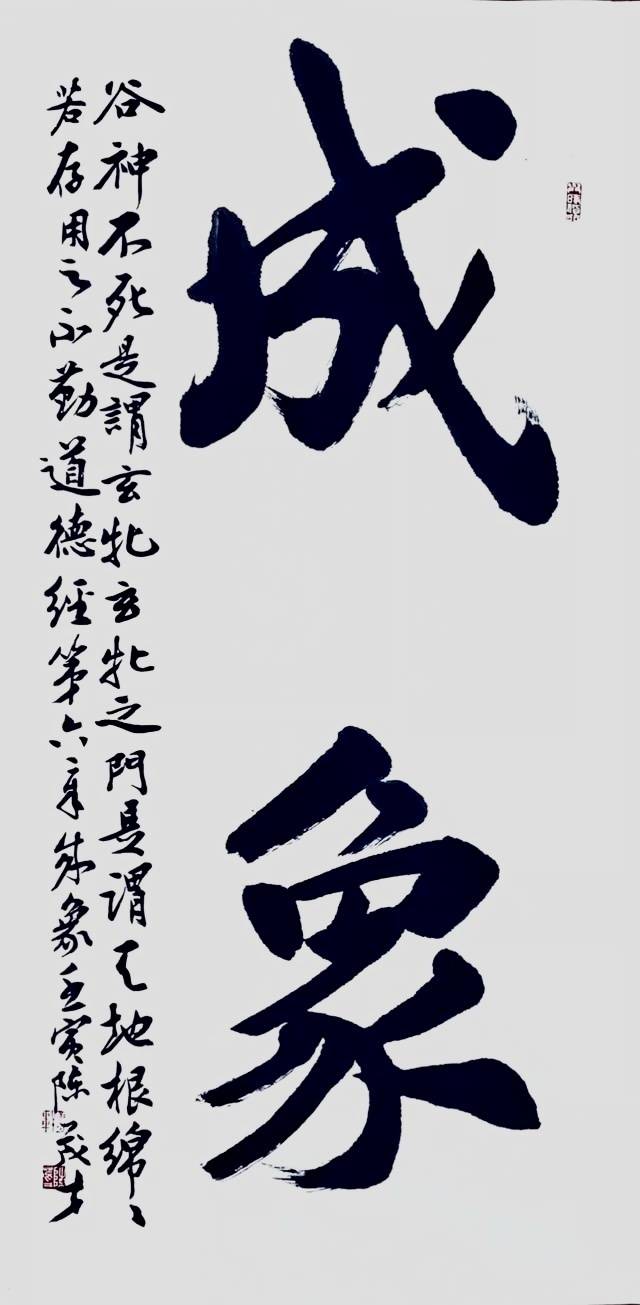 成象
谷神不死是謂玄牝玄牝之門是謂天地根綿〻
若存用之不勤道德經第六章成象壬寅陳茂才